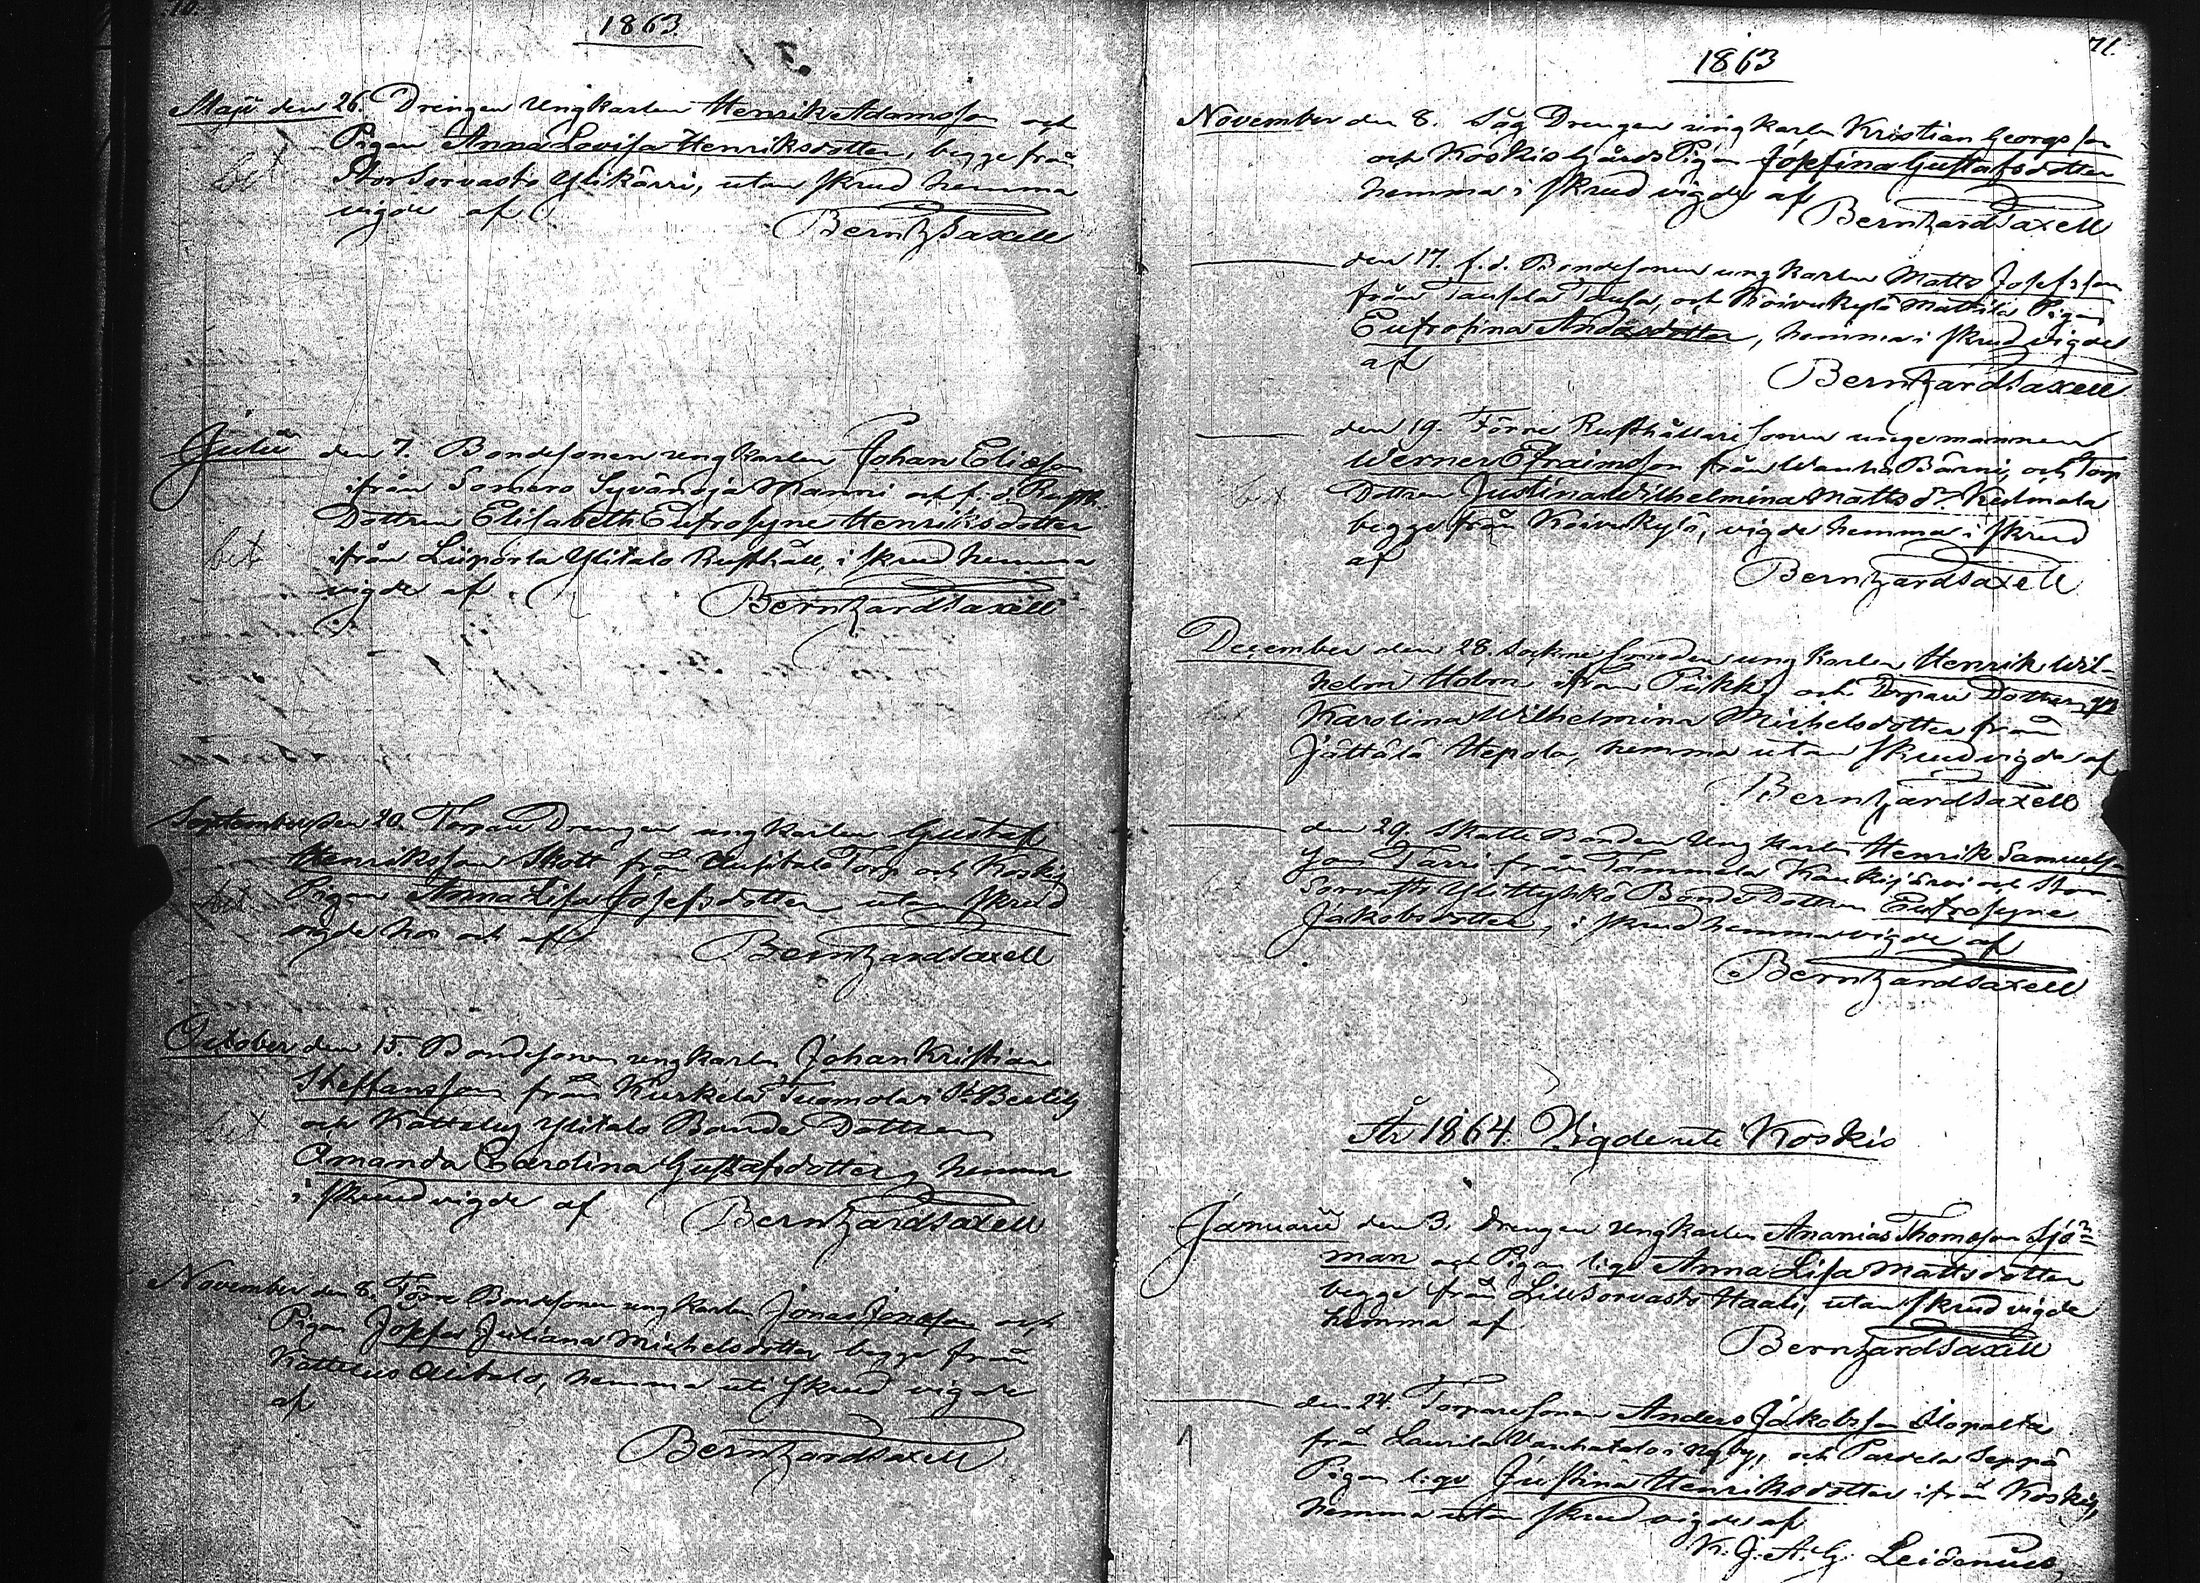 1863
Maji den 26. Drengen Ungkarlen Henrik Adamsson och
Pigan Anna Lovisa Henriksdotter, begge från
bet
Storsorvasto Ylikärri, utan skrud hemma
vigde af
Bernh Saxell
Julii den 7. Bondesonen ungkarlen Johan Eliasson
ifrån Somero Syvänoja Manni och f. d. Rusth.
Dottren Elisabeth Eufrosyne Henriksdotter
bet ifrån Liipola Ylitalo Rusthåll, i skrud hemma
vigde af
Bernhard Saxell
September den 20. Torpare Drengen ungkarlen Gustaf
Henriksson Skott från Torp och Koskis
bet Pigan Anna Lisa Josefsdotter utan skrud
vigde hos och af
Bernhard Saxell
October den 15. Bondesonen ungkarlen Johan Kristian
Steffansson från Kurkela Tuomola i St Bertils
bet och Kattelus Ylitalo Bonde Dottren
Amanda Carolina Gustafsdotter, hemma
i skrud vigde af
Bernhard Saxell
November den 8. Förre Bondesonen ungkarlen Jonas Jonasson och
Pigan Josefa Juliana Michelsdotter begge från
Kattelus Alitalo, hemma uti skrud vigde
af
Bernhard Saxell
71.
1863
November den 8. Såg Drengen ungkarlen Kristian Georgsson
och Koskis Gårds Pigan Josefina Gustafsdotter
hemma i skrud vigde af
Bernhard Saxell
den 17. f. d. Bondesonen ungkarlen Matts Josefsson
från Tausa, och Koivukylä Mattila Pigan
Eufrosina Andersdotter, hemma i skrud vigde
af
Bernhard Saxell
den 19. Förre Rusthållare sonen unge mannen
Werner Efraimsson från Wanha Bärni, och Torp
bet Dottren Justina Wilhelmina Matts dr. Kulmala
begge från Koivukylä, vigde hemma i skrud
af
Bernhard Saxell
December den 28. Sockne smeden ungkarlen Henrik Wil-
helm Holm ifrån Pükki, och Torpare Dottren
Karolina Wilhelmina Michelsdotter från
Jättälä Hepola, hemma utan skrud vigde af
Bernhard Saxell
den 29. Skatte Bonden Ung karlen Henrik Samuels-
son Tarri från Tammela Kaukijärvi och Stor
Sorvasto Ylöttyhkö Bonde Dottren Eufrosyne
Jakobsdotter, i skrud hemma vigde af
Bernhard Saxell
År 1864. Vigde uti Koskis
Januarii den 3. Drengen Ungkarlen Ananias Thomasson Sjö-
man och Pigan Anna Lisa Mattsdotter
begge från Lillsorvasto Haali, utan skrud vigde
hemma af
Bernhard Saxell
den 24. Torparesonen Anders Jakobsson
från Laurila Vanhatalo i Nyby, och Partela Seppä
Pigan Justina Henriksdotter ifrån Koskis,
hemma utan skrud vigde af
K. J. A. G. Leidenius